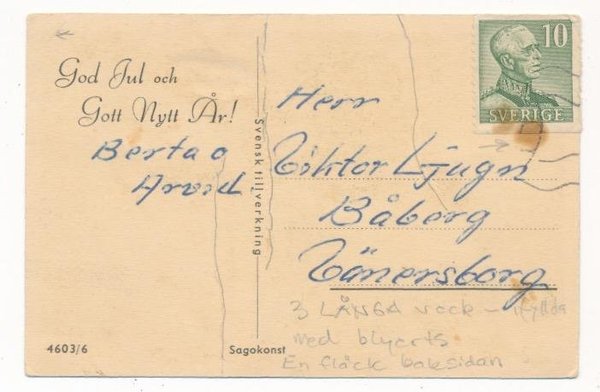 God Jul och
Gott Nytt År!
Berta o
Arvid
Svensk tillverkning
10
SVERIGE
Herr
Viktor Ljugn
Båberg
Vänersborg
3 LÅNGA veck - ifyllda
med blyerts
En fläck baksidan
4603/6
Sagokonst